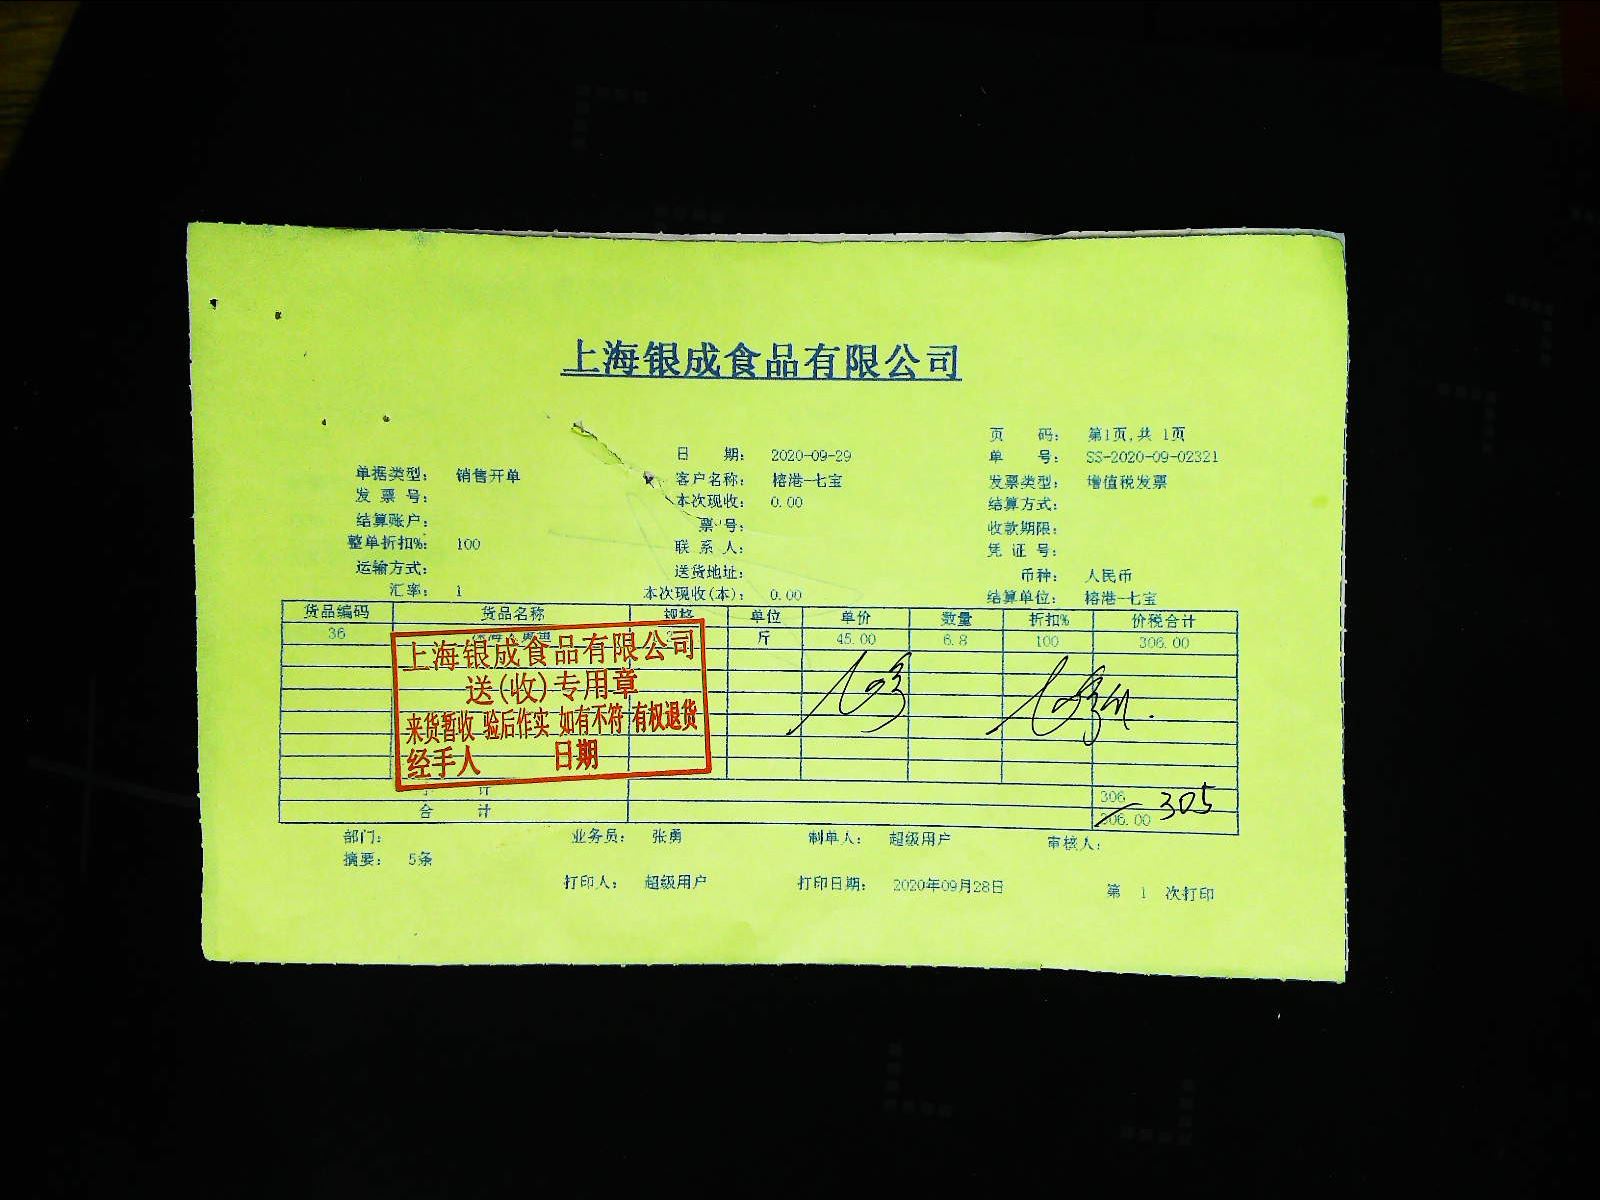 上海银成食品有限公司
页 码： 第1页,共 1页
日 期： 2020-09-29 单 号： SS-2020-09-02321
单据类型： 销售开单 客户名称： 榕港-七宝 发票类型： 增值税发票
发 票 号： 本次现收： 0.00 结算方式：
结算账户： 票 号： 收款期限：
整单折扣%： 100 联 系 人： 凭 证 号：
运输方式： 送货地址： 币种： 人民币
汇率： 1 本次现收(本)： 0.00 结算单位： 榕港-七宝
货品编码 货品名称 规格 单位 单价 数量 折扣% 价税合计
36 斤 45.00 6.8 100 306.00
上海银成食品有限公司
送(收)专用章
来货暂收 验后作实 如有不符 有权退货
经手人 日期
计 306
合 计 306.00 305
部门： 业务员： 张勇 制单人： 超级用户 审核人：
摘要： 5条
打印人： 超级用户 打印日期： 2020年09月28日 第 1 次打印